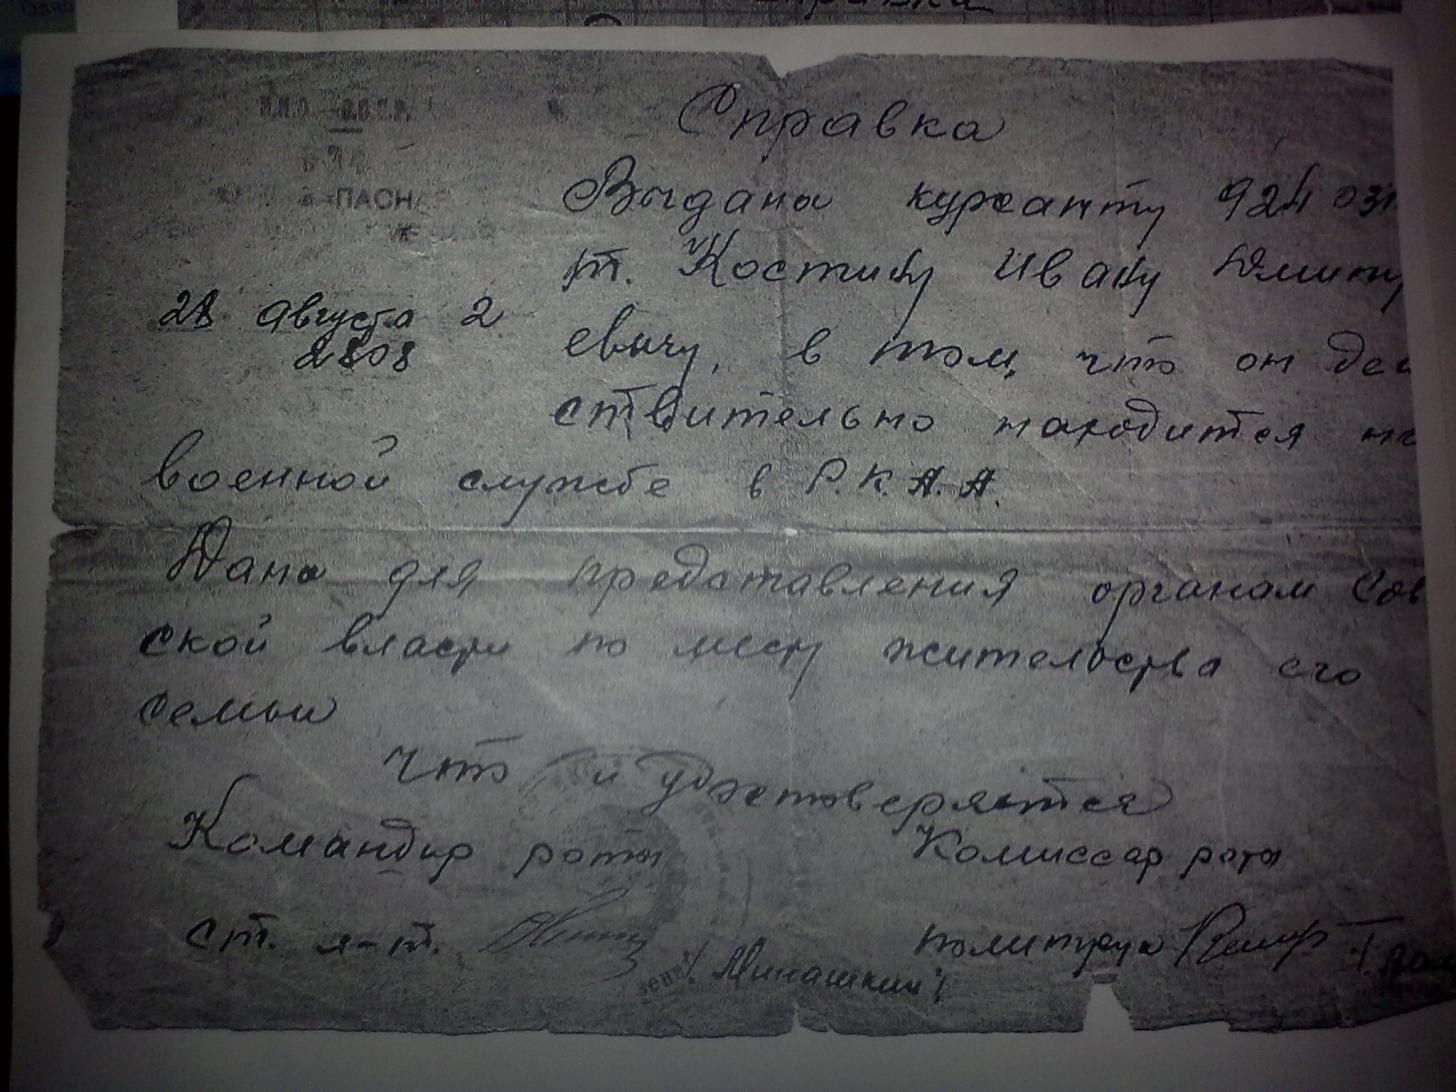 Справка
ПАСН
Выдана курсанту 924 озг
т. Костину Ивану Дмитр
28 августа 2
2808
евичу, в том, что он дей
ствительно находится на
военной службе в Р.К.А.А.
Дана для представления органам Сов
ской власти по месту жительства его
семьи
что и удостоверяется
Командир роты Комиссар роты
ст. л-т. политрук
/Минашкин/